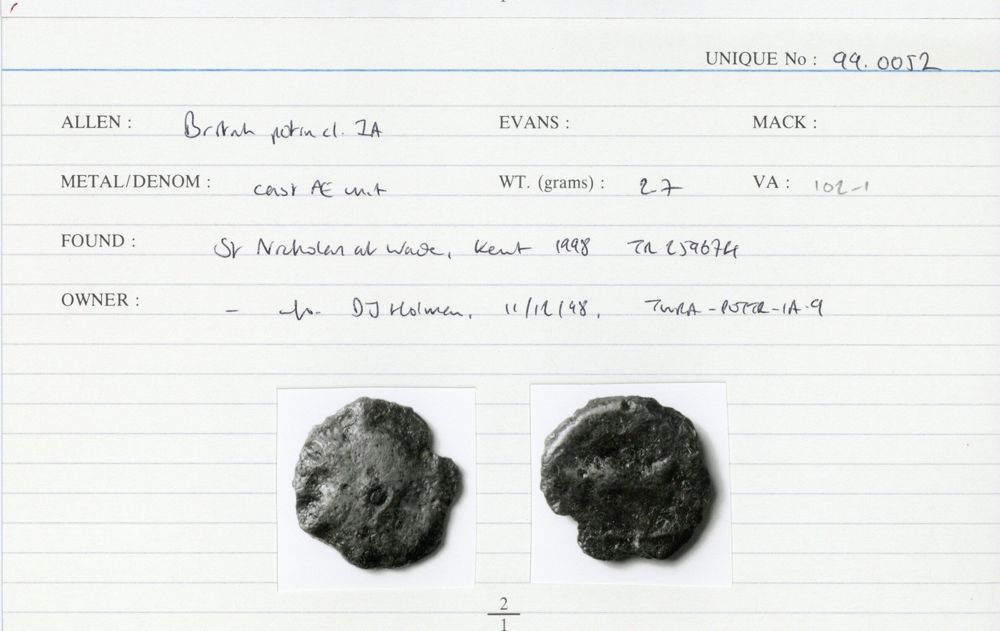 UNIQUE No : 99.0052
ALLEN : British potin cl. IA EVANS : MACK :
METAL/DENOM : cast Æ unit WT. (grams) : 2.7 VA : 102-1
FOUND : St Nicholas at Wade, Kent 1998 TR 259674
OWNER : - DJ Holman, 11/12/98,
2
1